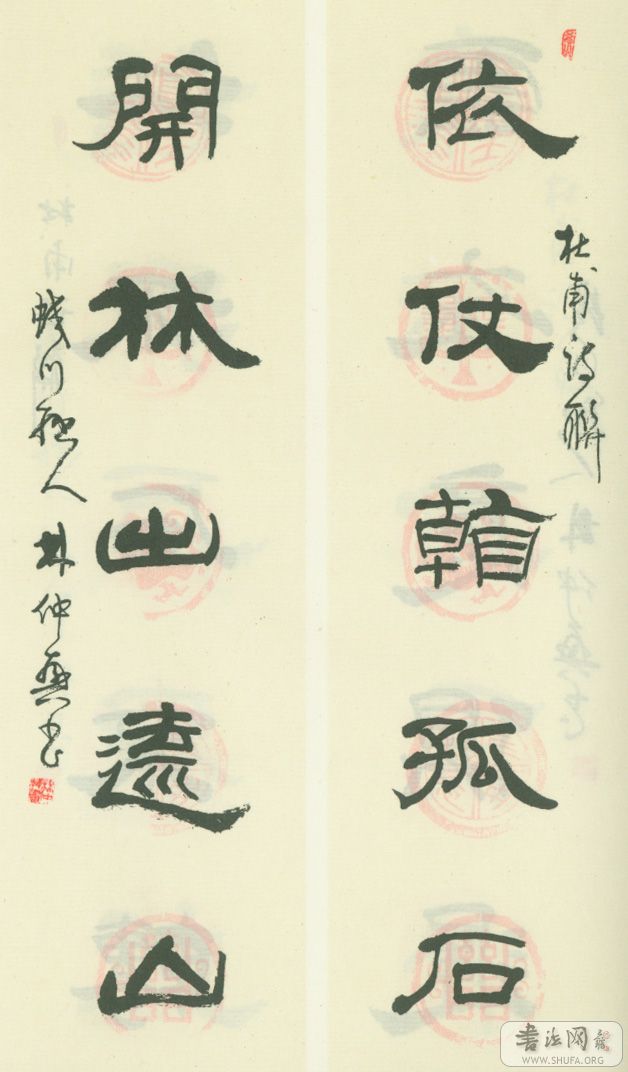 杜甫詩聯
依仗孤石
開林出遠山
川人林仲興書
書法网
WWW.SHUFA.ORG